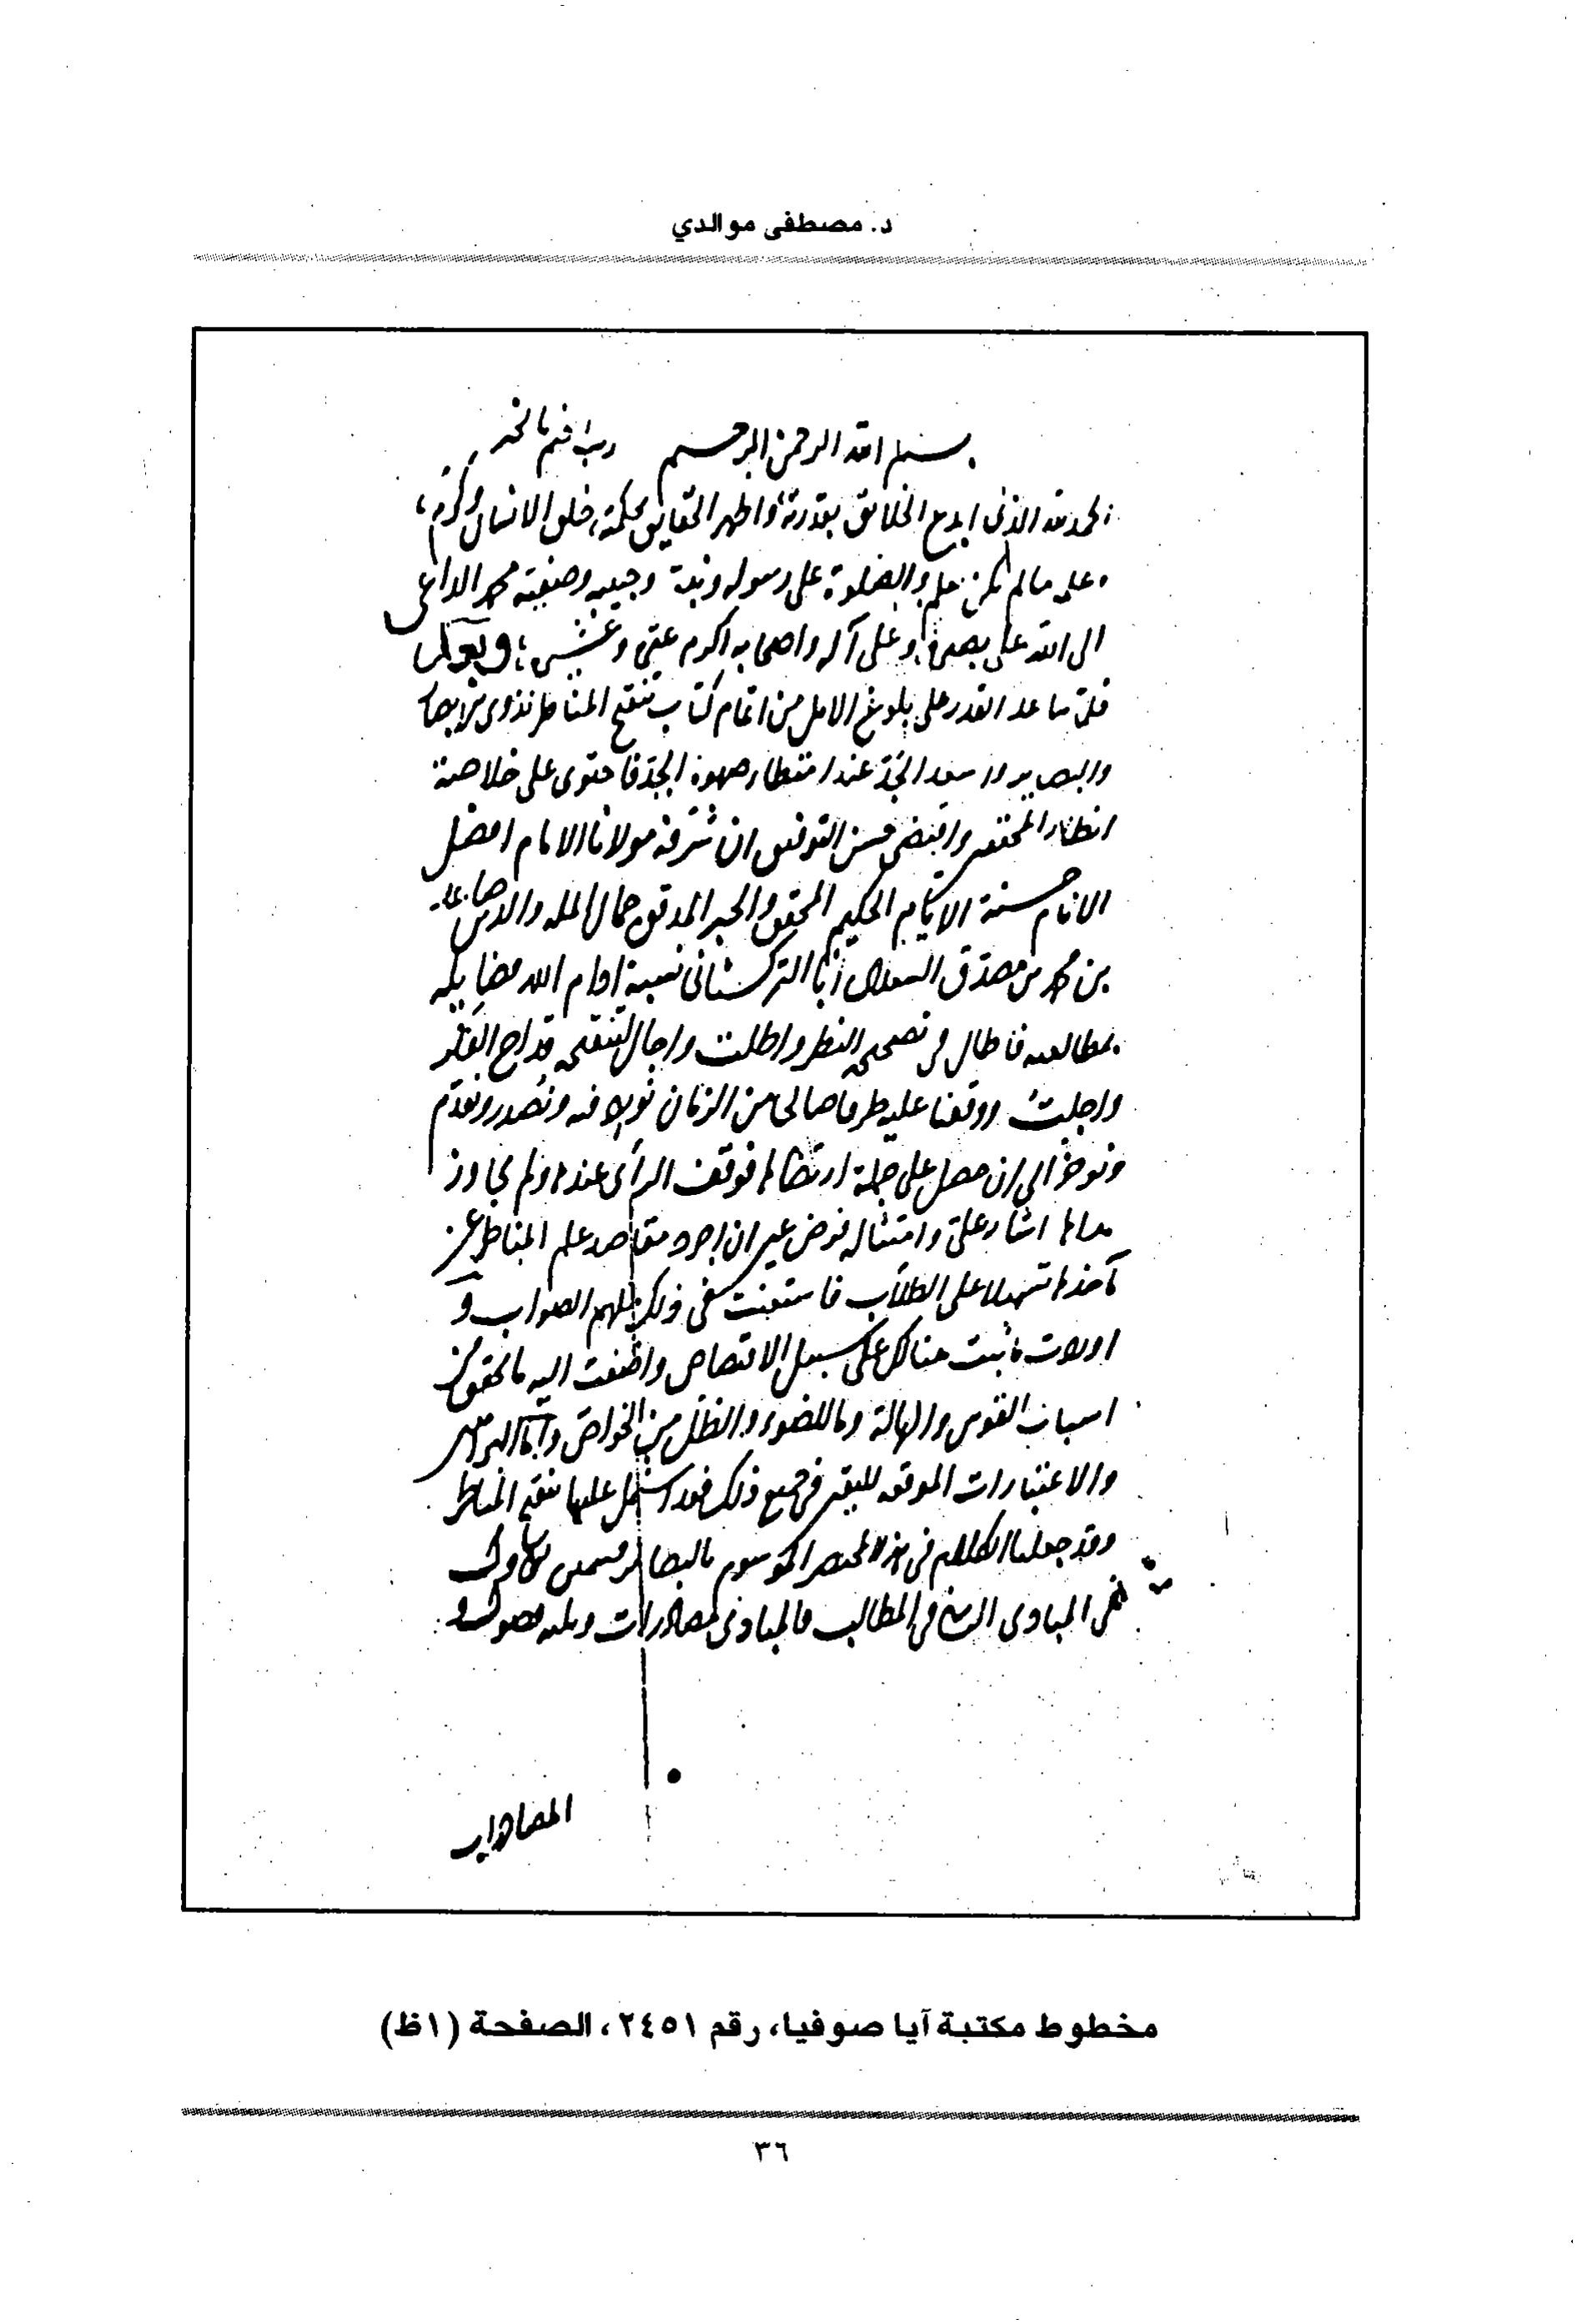 د. مصطفى موالدي
بسم الله الرحمن الرحيم رب اختم بالخير
الحمد لله الذى ابدع الخلائق بقدرته واظهر الحقايق بحكمته خلق الانسان وكرمه
وعلمه مالم يكن يعلم والصلوة على رسوله ونبيه وحبيبه وصفيه محمد الداعى
الى الله على بصيرة وعلى آله واصحابه اكرم
فلمّا ساعد القدر على بلوغ الامل من اتمام كتاب تنقيح المناظر لذوى الابصار
والبصاير عند امتطاء صهوة الجدّ فاحتوى على خلاصة
انظار واقتضى حسن التوفيق ان شرفه مولانا الامام افضل
الانام حسنة الايام الحكيم المحقق والحبر المدقق جمال المله والدين صاعد
بن محمد بن مصدّق التركستانى نسبة ادام الله فضايله
بمطالعته فاطال فى تصحيحه النظر واطلت واجال لتنقيحه قداح الفكر
واجلت ووقفنا عليه طرفا صالحا من الزمان
الى ان حصل على جملة ارتضاها فوقف الرأى عندها ولم يجاوز
اشار علىّ وامتثاله فرض عين ان اجرد مقاصد علم المناظر عن
مآخذها تسهيلا على الطلّاب فاستعنت فى ذلك بملهم الصواب و
اوردت ما ثبت هناك على سبيل الاقتصاص واضفت اليه ما تحقق من
اسباب القوس والهالة وما للضوء والظلّ من الخواصّ وامّا البراهين
والاعتبارات الموقعه لليقين فى جميع ذلك فقد اشتمل عليها تنقيح المناظر
وقد جعلنا الكلام فى هذا المختصر الموسوم بالبصائر قسمين الاول
فى المبادى الثانى فى المطالب فالمبادى مصادرات
المصادرات
مخطوط مكتبة آيا صوفيا، رقم ٢٤٥١، الصفحة (١ظ)
٣٦